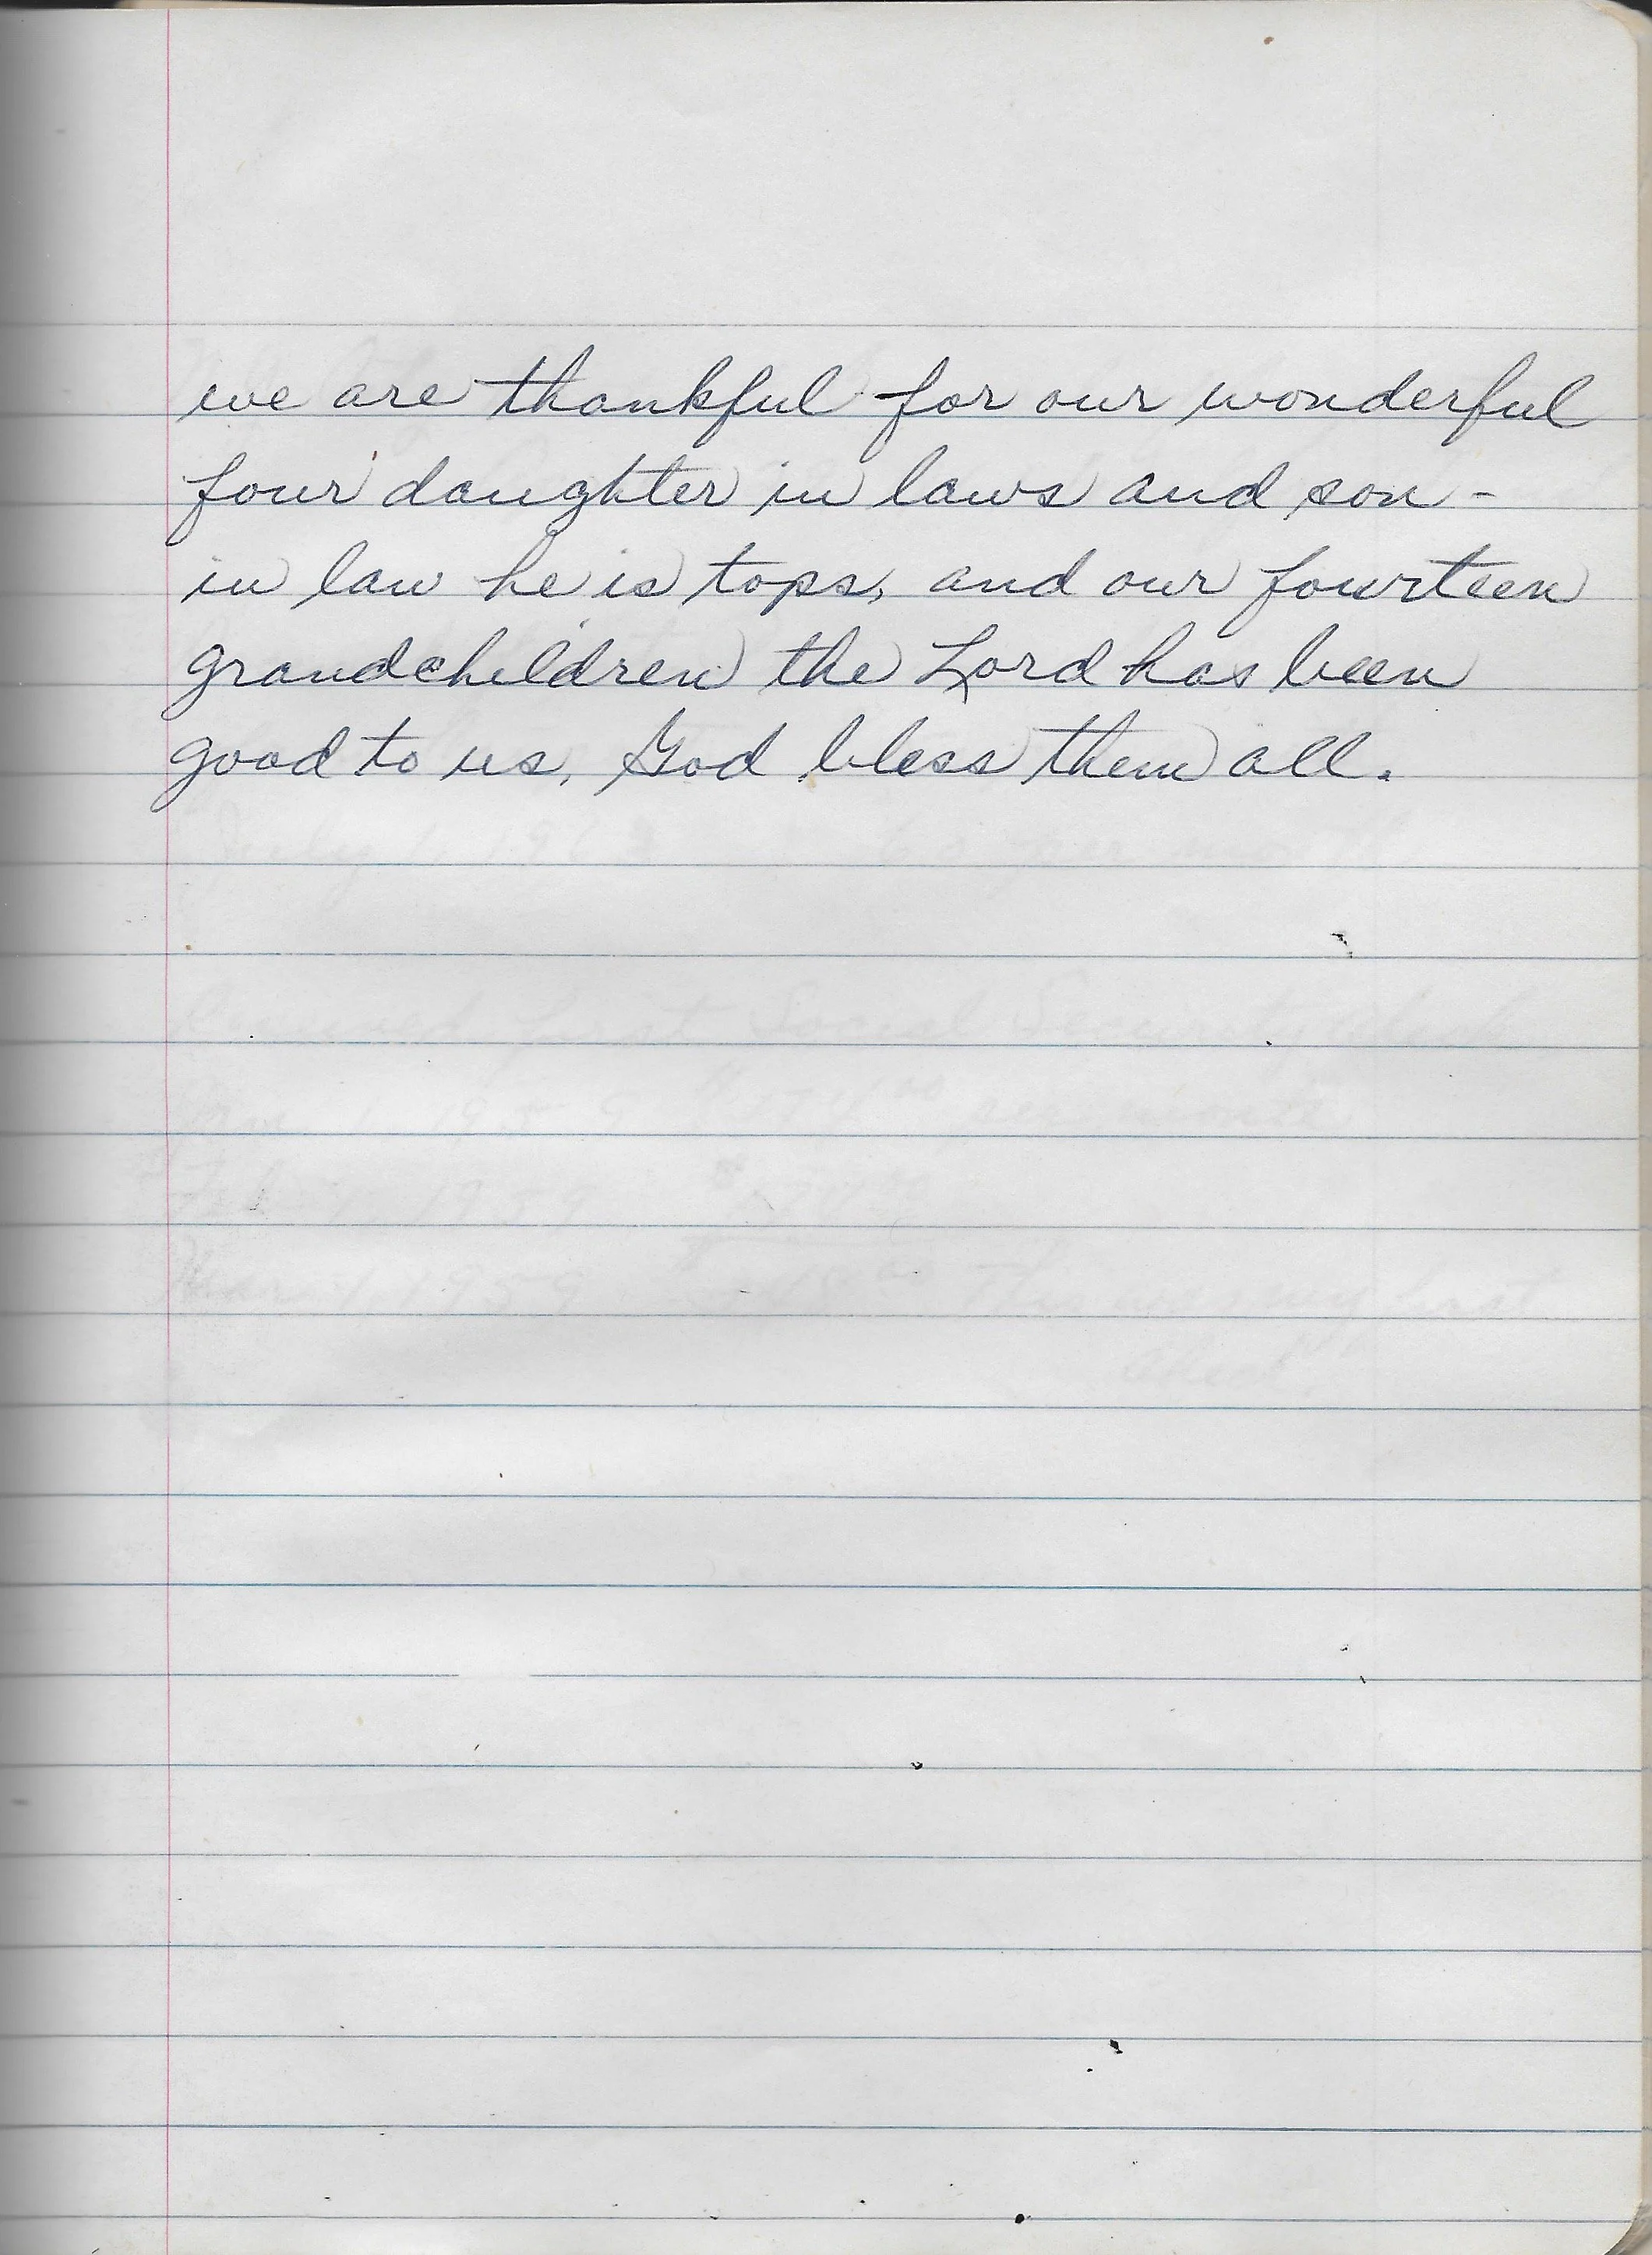 we are thankful for our wonderful
four daughter in laws and son -
in law he is tops, and our fourteen
grandchildren the Lord has been
good to us, God bless them all.